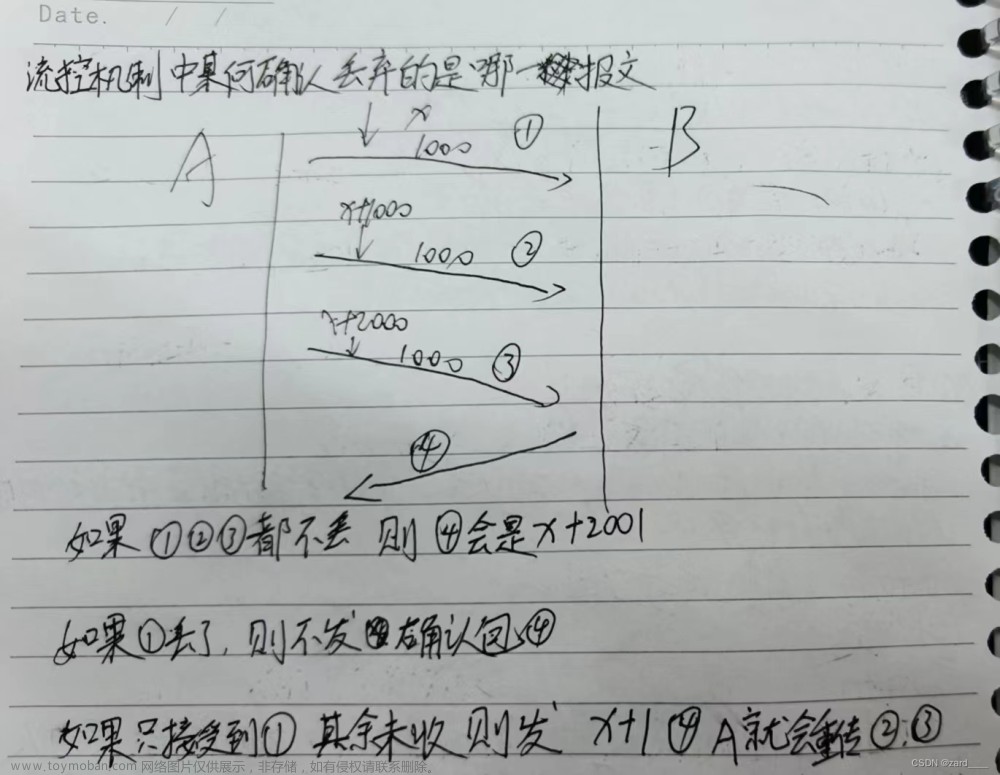 Date. / /
流控机制中某何确认丢弃的是哪一报文
x
A 1000 ① B
x+1000
1000 ②
x+2000
1000 ③
④
如果①②③都不丢 则④会是x+2001
如果①丢了,则不发确认包④
如果只接受到① 其余未收 则发 x+1 ④ A就会重传②,③
www.toymoban.com 网络图片仅供展示,非存储,如有侵权请联系删除。
CSDN @zard___